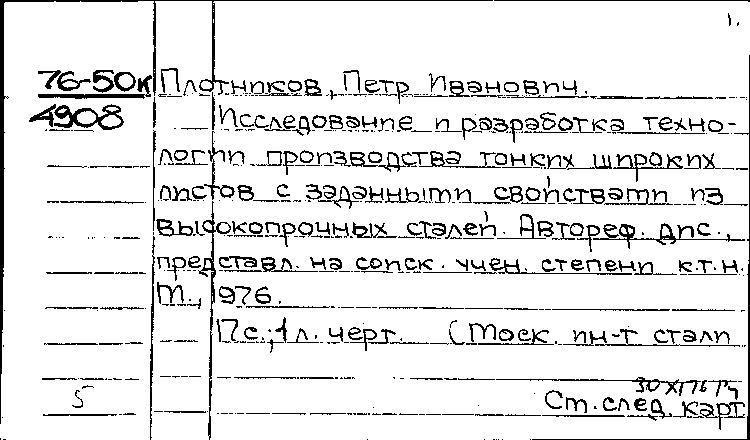 1.
76-50к Плотников, Петр Иванович.
4908 Исследование и разработка техно-
логии производства тонких широких
листов с заданными свойствами из
высокопрочных сталей. Автореф. дис.,
представл. на соиск. учен. степени к.т.н.
М., 1976.
17с.; 1 л. черт. (Моск. ин-т стали
30 XI 76
5 Ст. след. карт